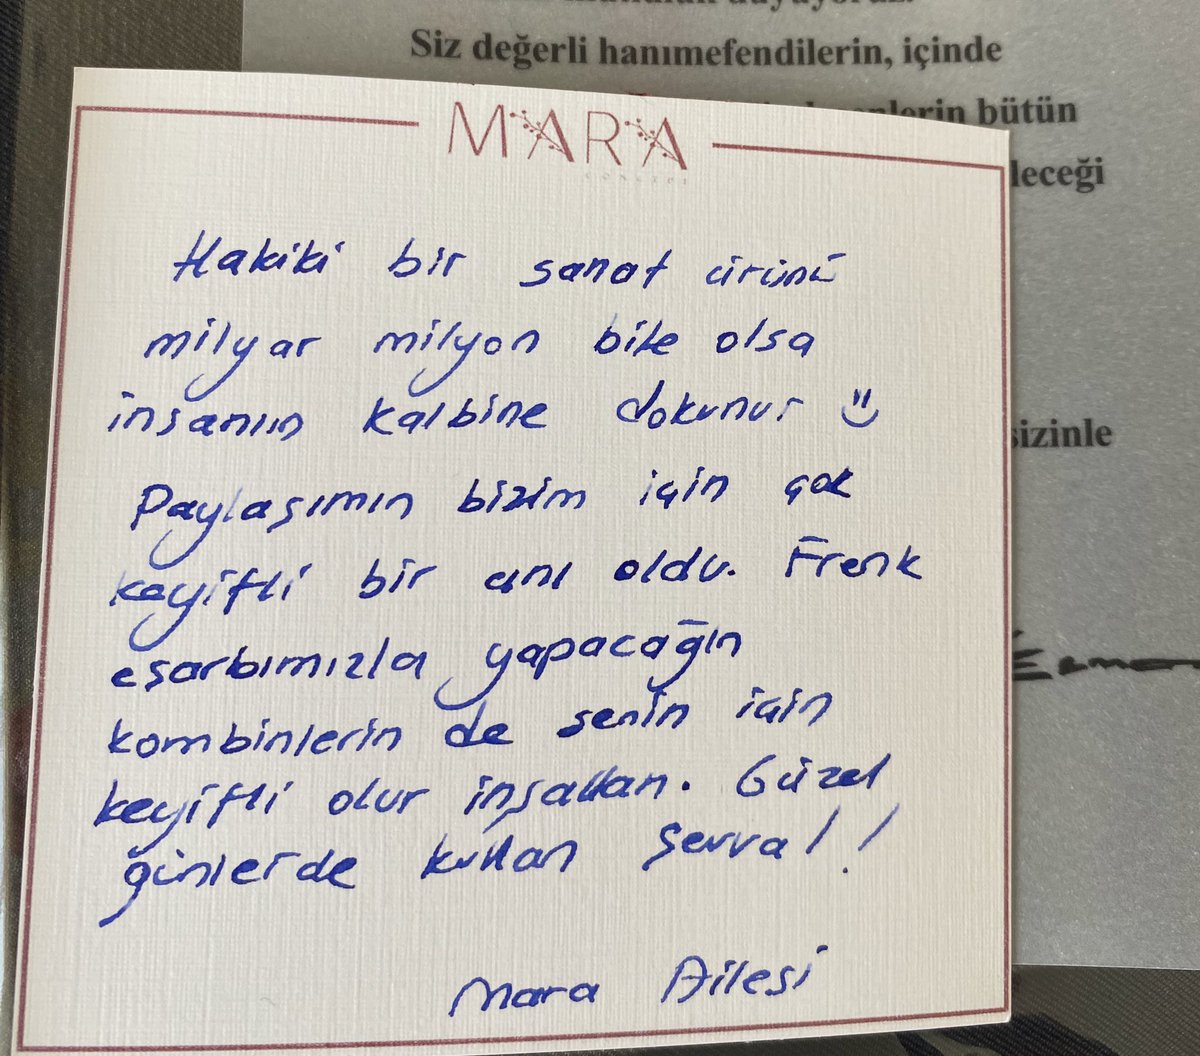 Siz değerli hanımefendilerin, içinde
bütün
leceği
sizinle
MARA
concept
Hakiki bir sanat ürünü
milyar milyon bile olsa
insanın kalbine dokunur
Paylaşımın bizim için çok
keyifli bir anı oldu. Frenk
eşarbımızla yapacağın
kombinlerin de senin için
keyifli olur inşallah. Güzel
günlerde kullan Şevval!
Mara Ailesi